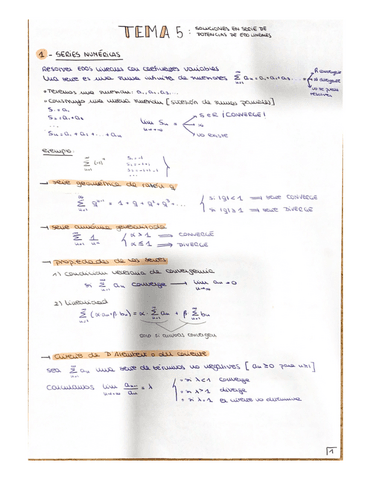 TEMA 5: SOLUCIONES EN SERIE DE
POTENCIAS DE EDO LINEALES
1 - SERIES NUMÉRICAS
Resolver EDOs lineales con coeficientes variables
Una serie es una suma infinita de números ∑ an = a1 + a2 + a3...
converge
diverge
no se puede
• Tenemos una sucesión: a1, a2, a3...
• Construyo una nueva sucesión [sucesión de sumas parciales]
S1 = a1
S2 = a1 + a2
...
Sn = a1 + a2 + ... + an
lim Sn =
n→∞
S ∈ ℝ (CONVERGE)
±∞
no existe
Ejemplo:
∑ (-1)ⁿ
→ serie geométrica de razón q
∑ qⁿ⁻¹ = 1 + q + q² + q³...
si |q| < 1 ⟹ serie CONVERGE
si |q| ≥ 1 ⟹ serie DIVERGE
→ serie armónica generalizada
∑ 1/n^α
α > 1 ⟹ CONVERGE
α ≤ 1 ⟹ DIVERGE
→ propiedades de las series
1) condición necesaria de convergencia
si ∑ an converge ⟹ lim an = 0
n→∞
2) Linealidad
∑ (α an + β bn) = α · ∑ an + β ∑ bn
solo si ambas convergen
→ Criterio de D'Alembert o del cociente
sea ∑ an una serie de términos no negativos [an ≥ 0 para n≥1]
Calculamos lim an+1/an = λ
n→∞
- si λ < 1 converge
- si λ > 1 diverge
- si λ = 1 el criterio no determina
1